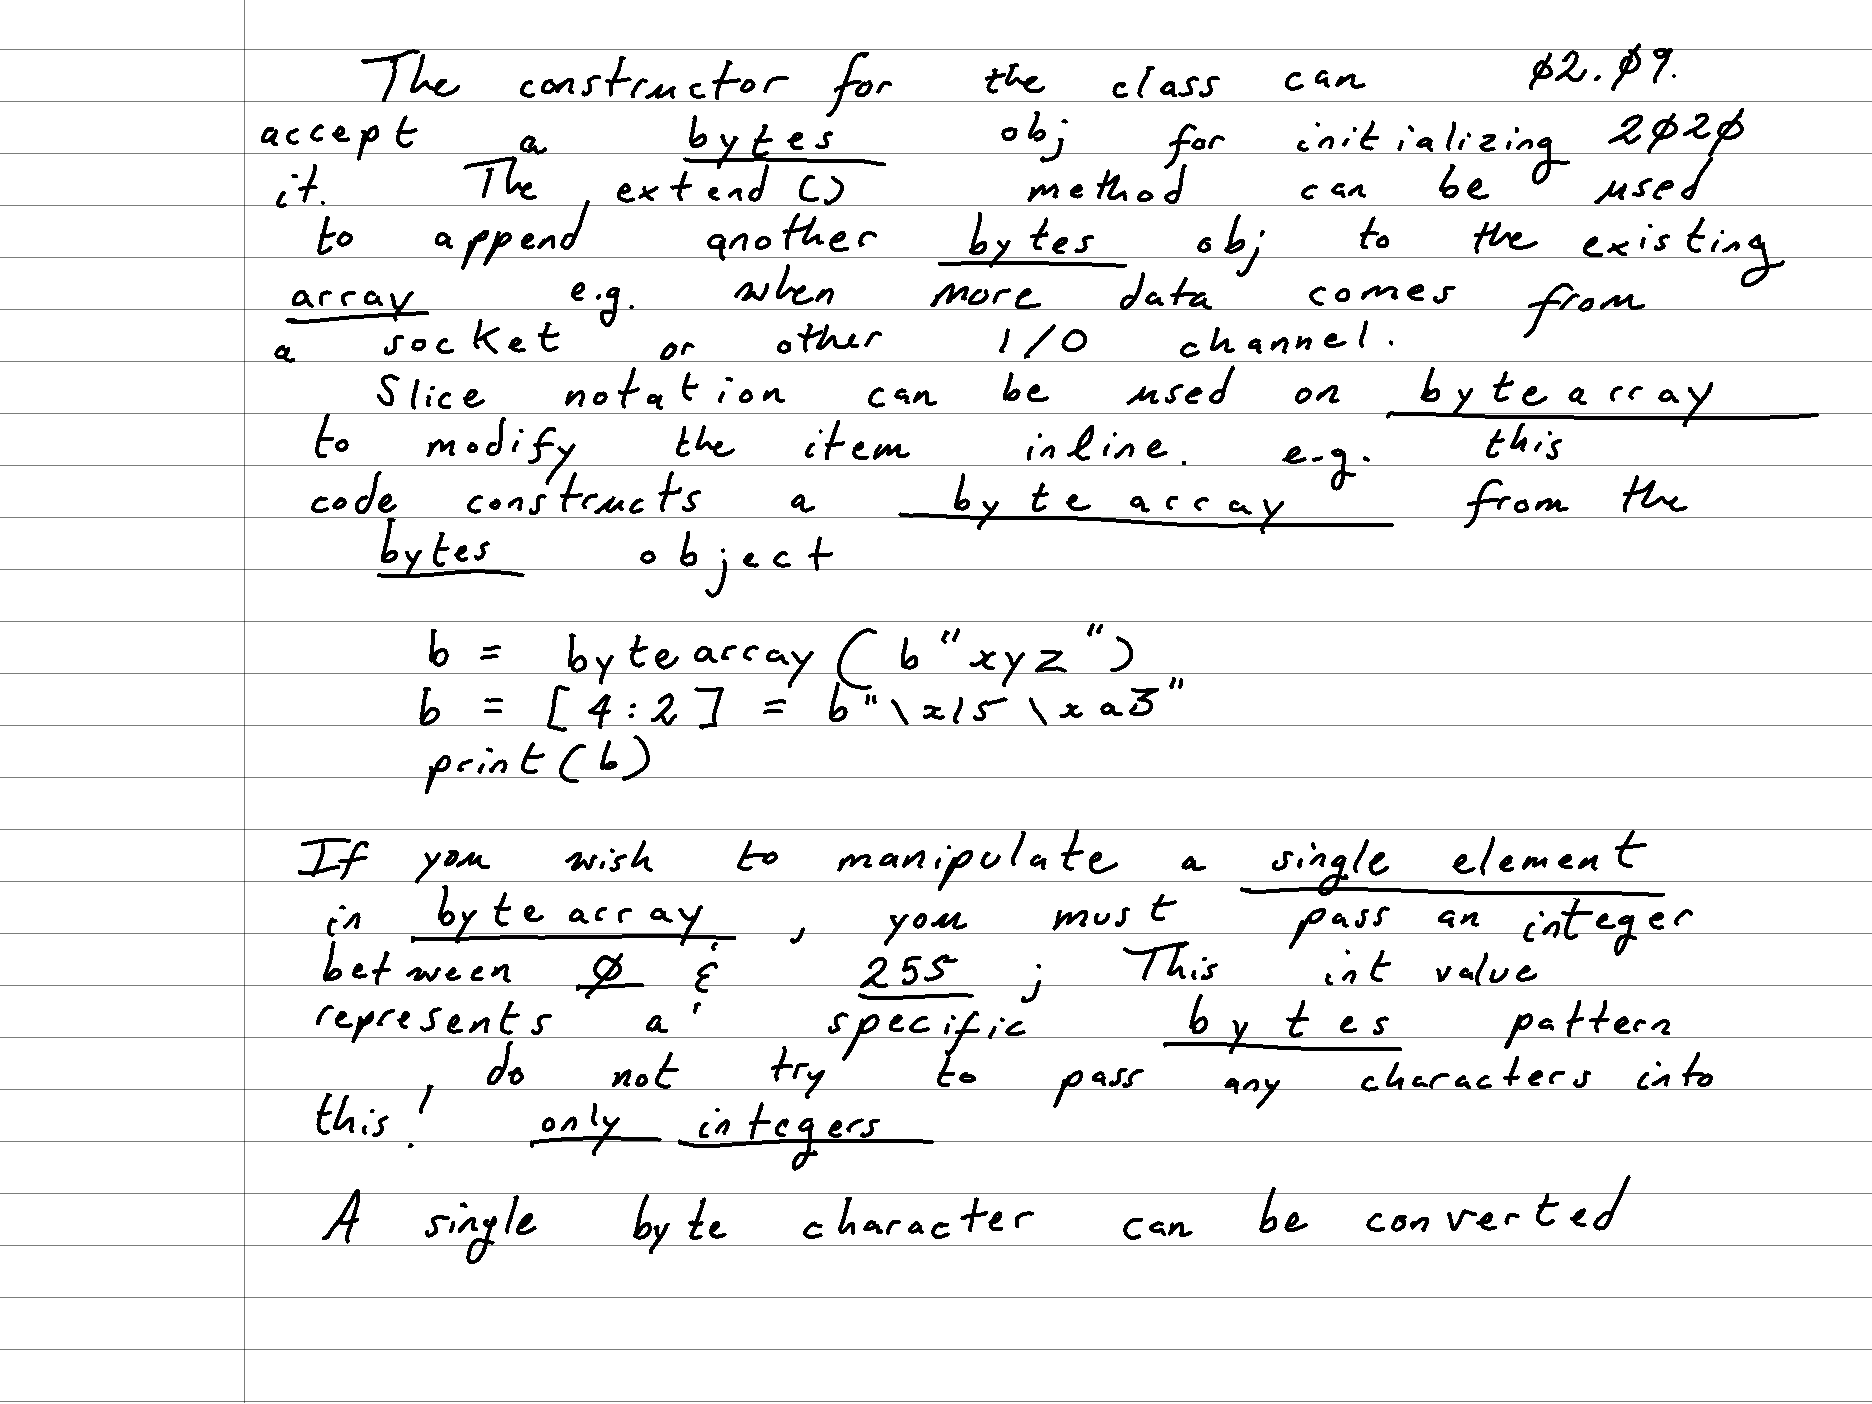 The constructor for the class can ø2.ø9.
accept a bytes obj for initializing 2ø2ø
it. The extend () method can be used
to append another bytes obj to the existing
array e.g. when more data comes from
a socket or other I/O channel.
Slice notation can be used on bytearray
to modify the item inline. e.g. this
code constructs a bytearray from the
bytes object
b = bytearray ( b"xyz")
b = [4:2] = b"\x15 \xa3"
print (b)
If you wish to manipulate a single element
in bytearray, you must pass an integer
between ø & 255 ; This int value
represents a specific bytes pattern
do not try to pass any characters into
this! only integers
A single byte character can be converted